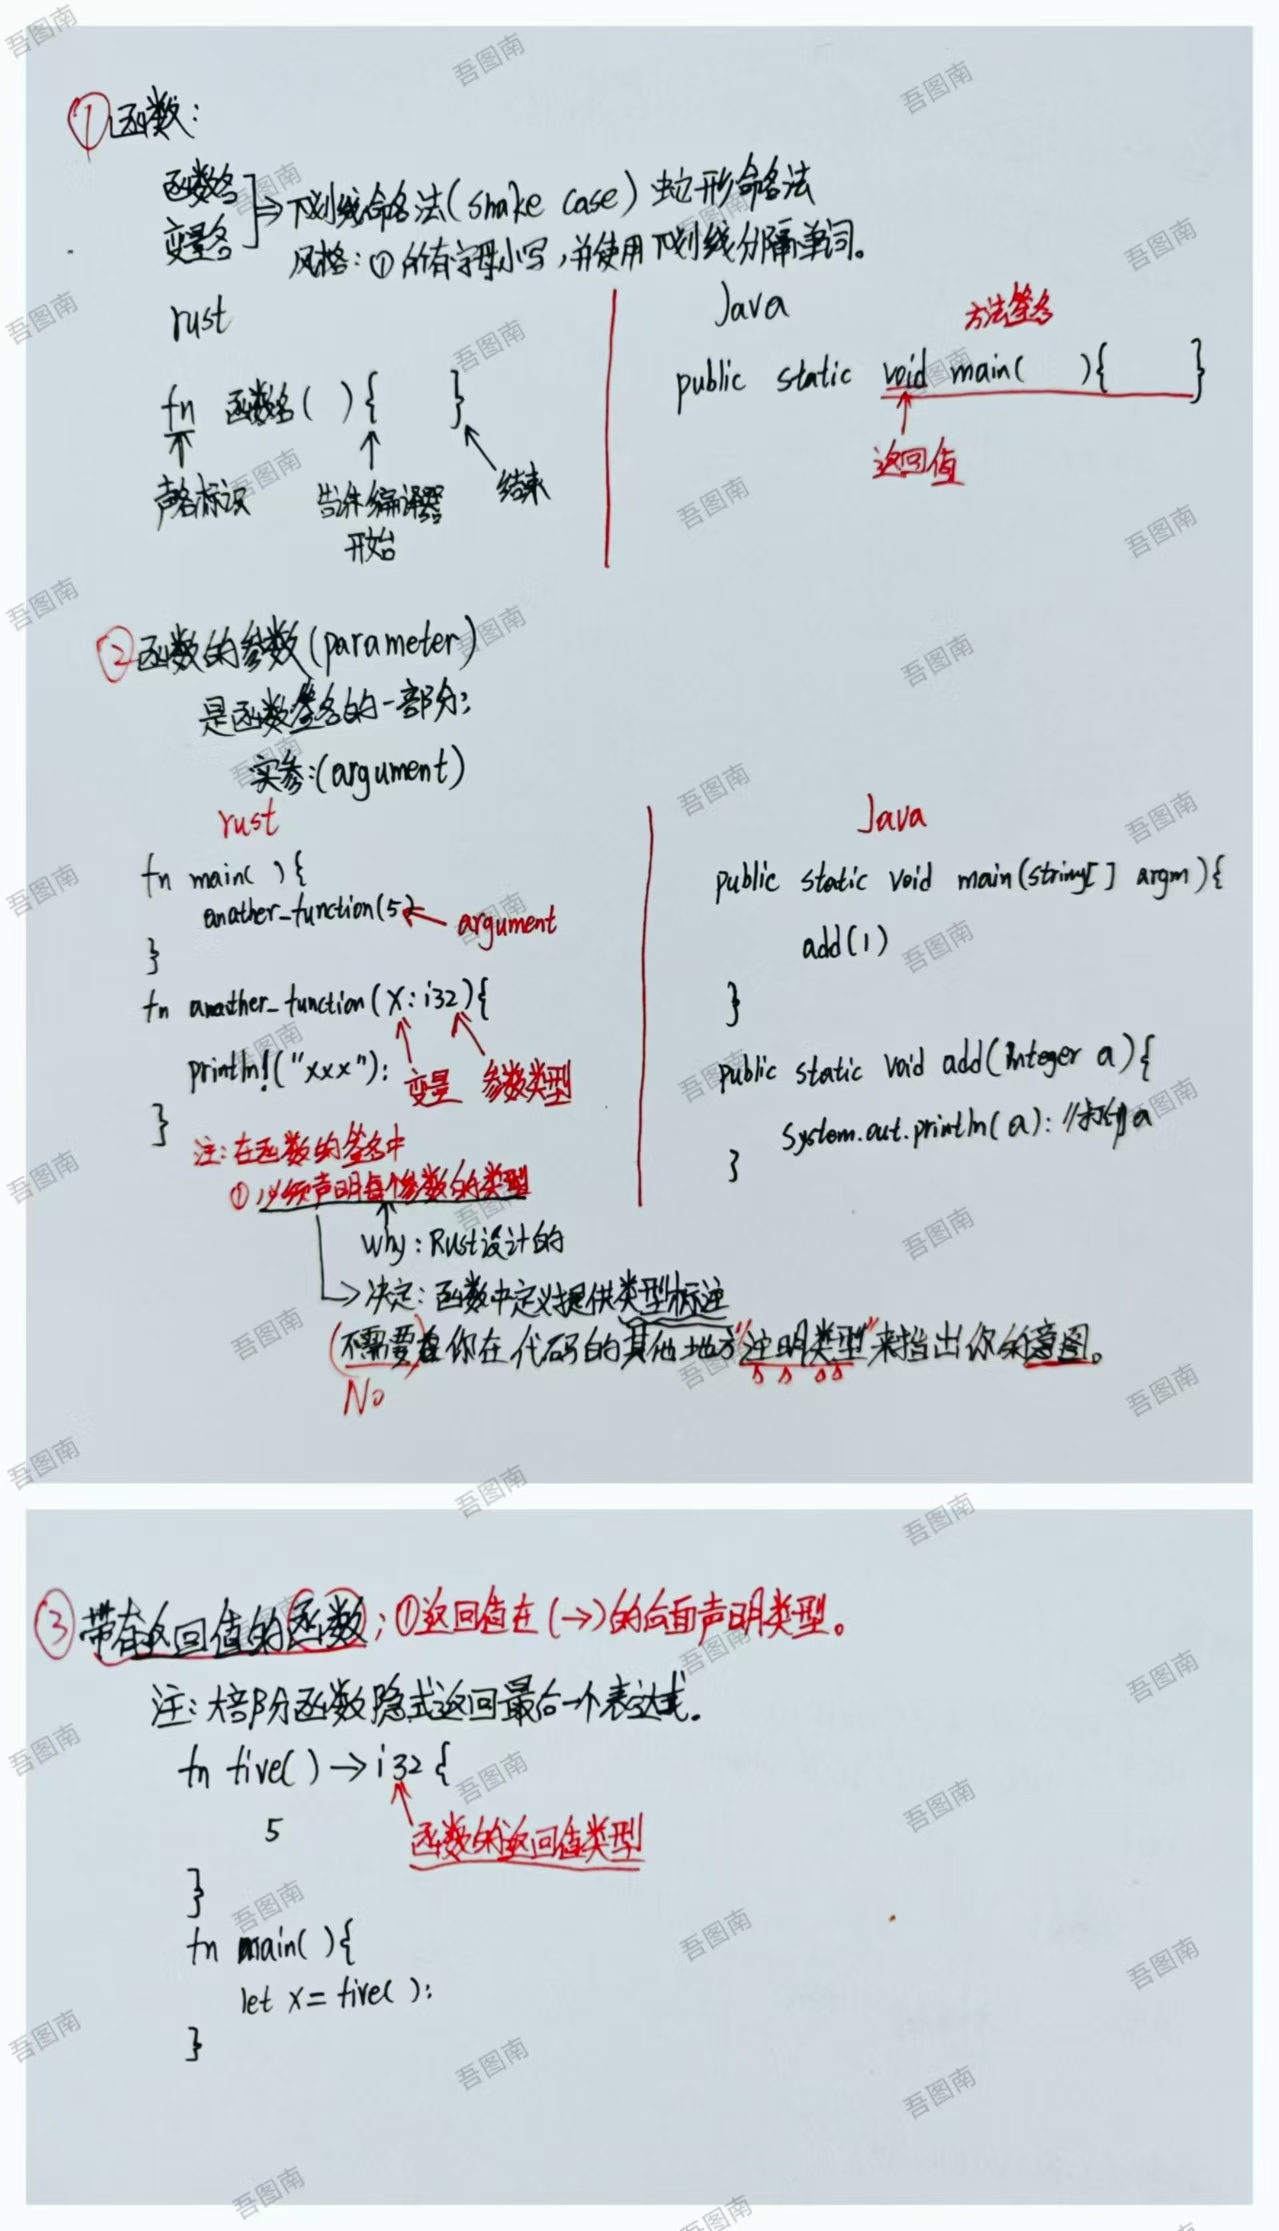 ①函数:
函数名
变量名
⇒下划线命名法(snake case) 蛇形命名法
风格:①所有字母小写,并使用下划线分隔单词。
rust
fn 函数名( ){ }
声名标识
告诉编译器
开始
结束
Java
方法签名
public static void main( ){ }
返回值
②函数的参数(parameter)
是函数签名的一部分;
实参:(argument)
rust
fn main( ){
anather_function(5)
argument
}
fn anather_function(x:i32){
println!("xxx");
变量 参数类型
}
注:在函数的签名中
①必须声明每个参数的类型
why:Rust设计的
决定:函数中定义提供类型标注
(不需要)你在代码的其他地方"注明类型"来指出你的意图。
No
Java
public static void main(string[] argm){
add(1)
}
public static void add(Integer a){
system.out.println(a); //打印a
}
③带有返回值的函数;①返回值在(→)的后面声明类型。
注:大部分函数隐式返回最后一个表达式。
fn five()→i32{
5
函数的返回值类型
}
fn main( ){
let x=five( );
}
吾图南